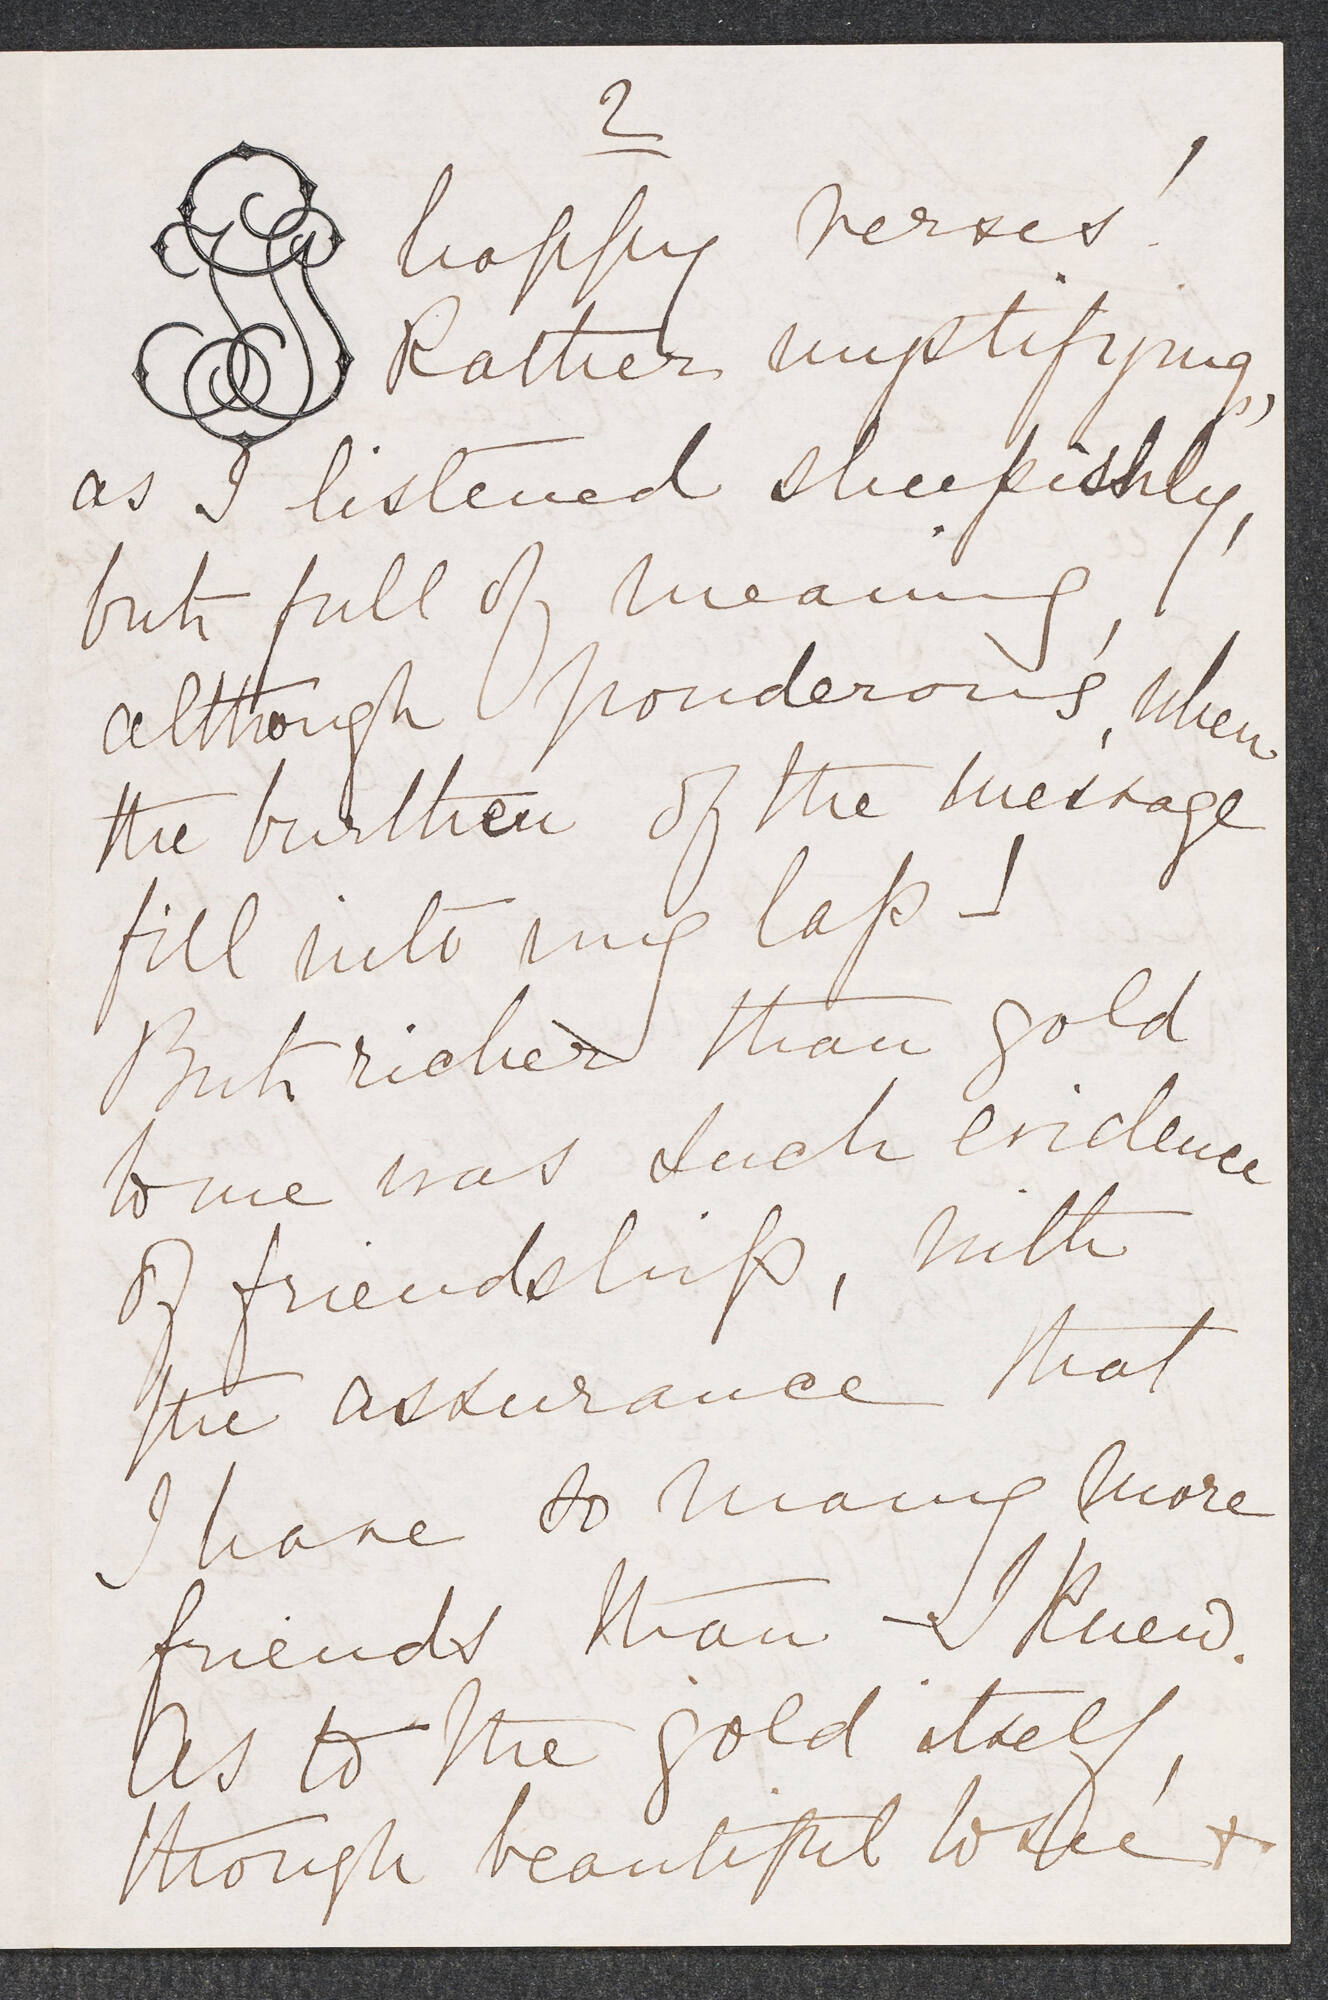 2
happy verses!
Rather mystifying,
as I listened sheepishly,
but full of meaning,
although ponderous, when
the burthen of the message
fell into my lap!
But richer than gold
to me was such evidence
of friendship, with
the assurance that
I have so many more
friends than I knew.
As to the gold itself,
though beautiful to see +